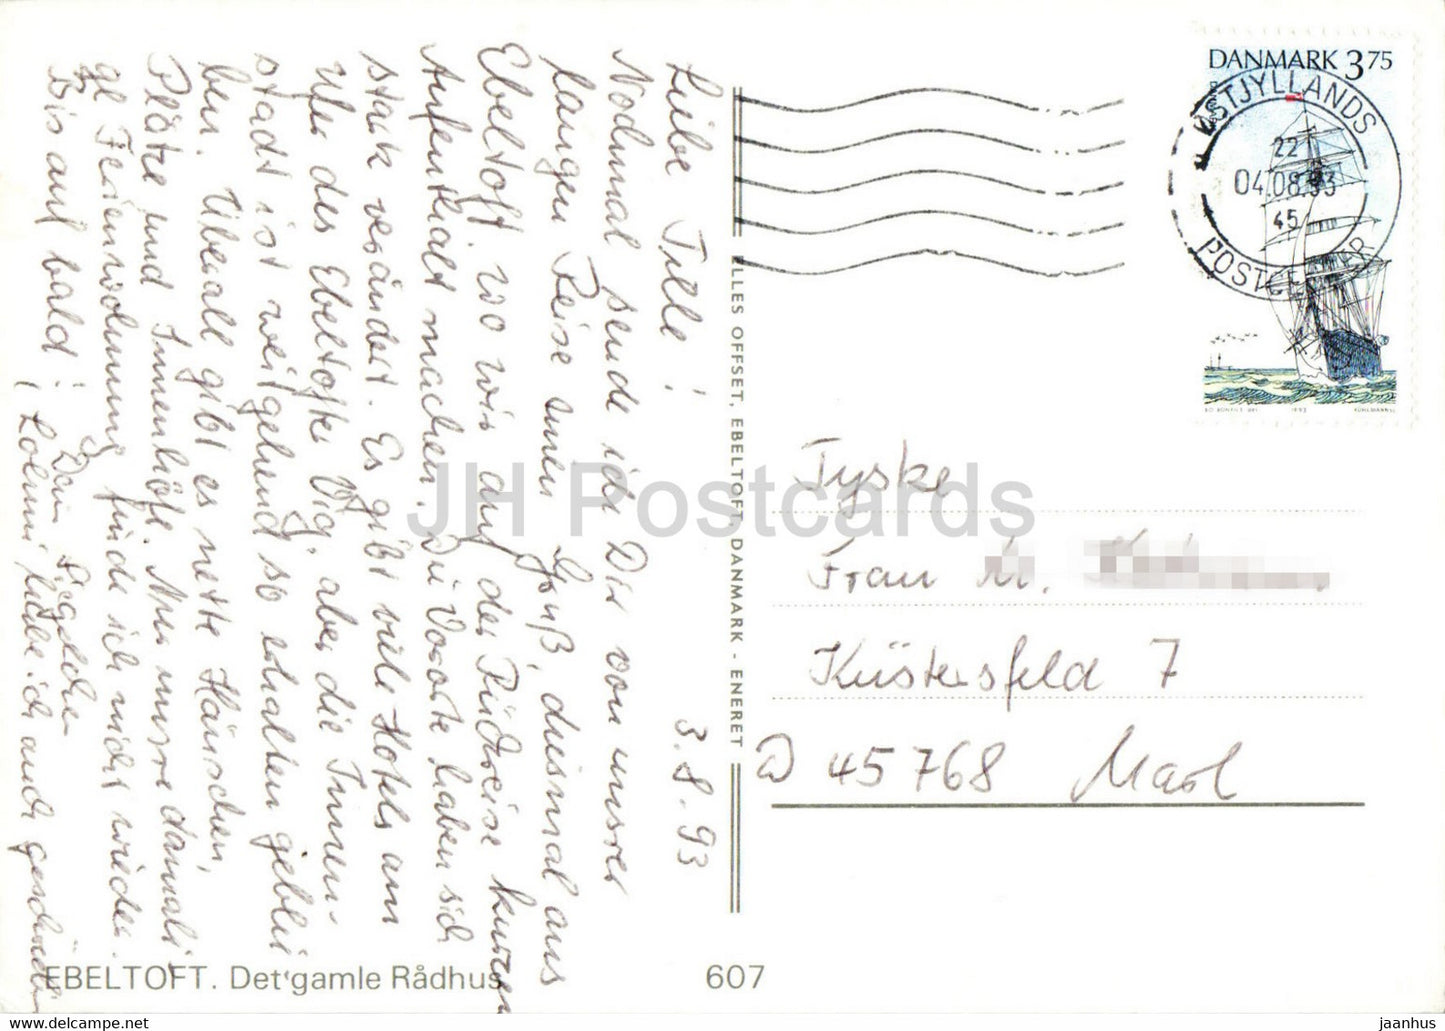 3.8.93
Liebe Tilli!
Nochmal sende ich Dir von unsrer
langen Reise einen Gruß, diesmal aus
Ebeltoft, wo wir auf der Rückreise kurzen
Aufenthalt machen. Die Vororte haben sich
stark verändert. Es gibt viele Hotels am
Ufer des Ebeltofter Vig, aber die Innen-
stadt ist weitgehend so erhalten geblie
ben. Überall gibt es nette Häuschen,
Plätze und Innenhöfe. Nur unsre damali
ge Ferienwohnung finde ich nicht wieder.
Bis auf bald!
Dein
habe ich auch geschrieben
EBELTOFT. Det gamle Rådhus
607
ELLES OFFSET, EBELTOFT, DANMARK - ENERET
DANMARK 3.75
ØSTJYLLANDS
22
04.08.93
45
POSTCENTER
1993
Tyske
Frau
Küstersfeld 7
D 45768 Marl
JH Postcards
EBELTOFT-01.jpg